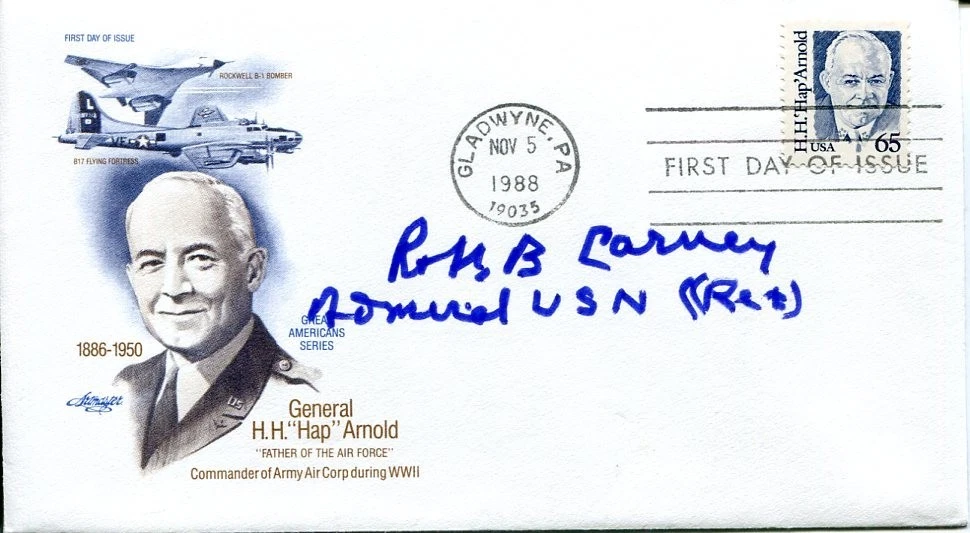 FIRST DAY OF ISSUE
ROCKWELL B-1 BOMBER
B17 FLYING FORTRESS
L
1886-1950
Artmaster
US
GREAT
AMERICANS
SERIES
General
H.H. "Hap" Arnold
"FATHER OF THE AIR FORCE"
Commander of Army Air Corp during WWII
GLADWYNE, PA
NOV 5
1988
19035
H.H. 'Hap' Arnold
USA
65
FIRST DAY OF ISSUE
Robt B Carney
Admiral USN (Ret)